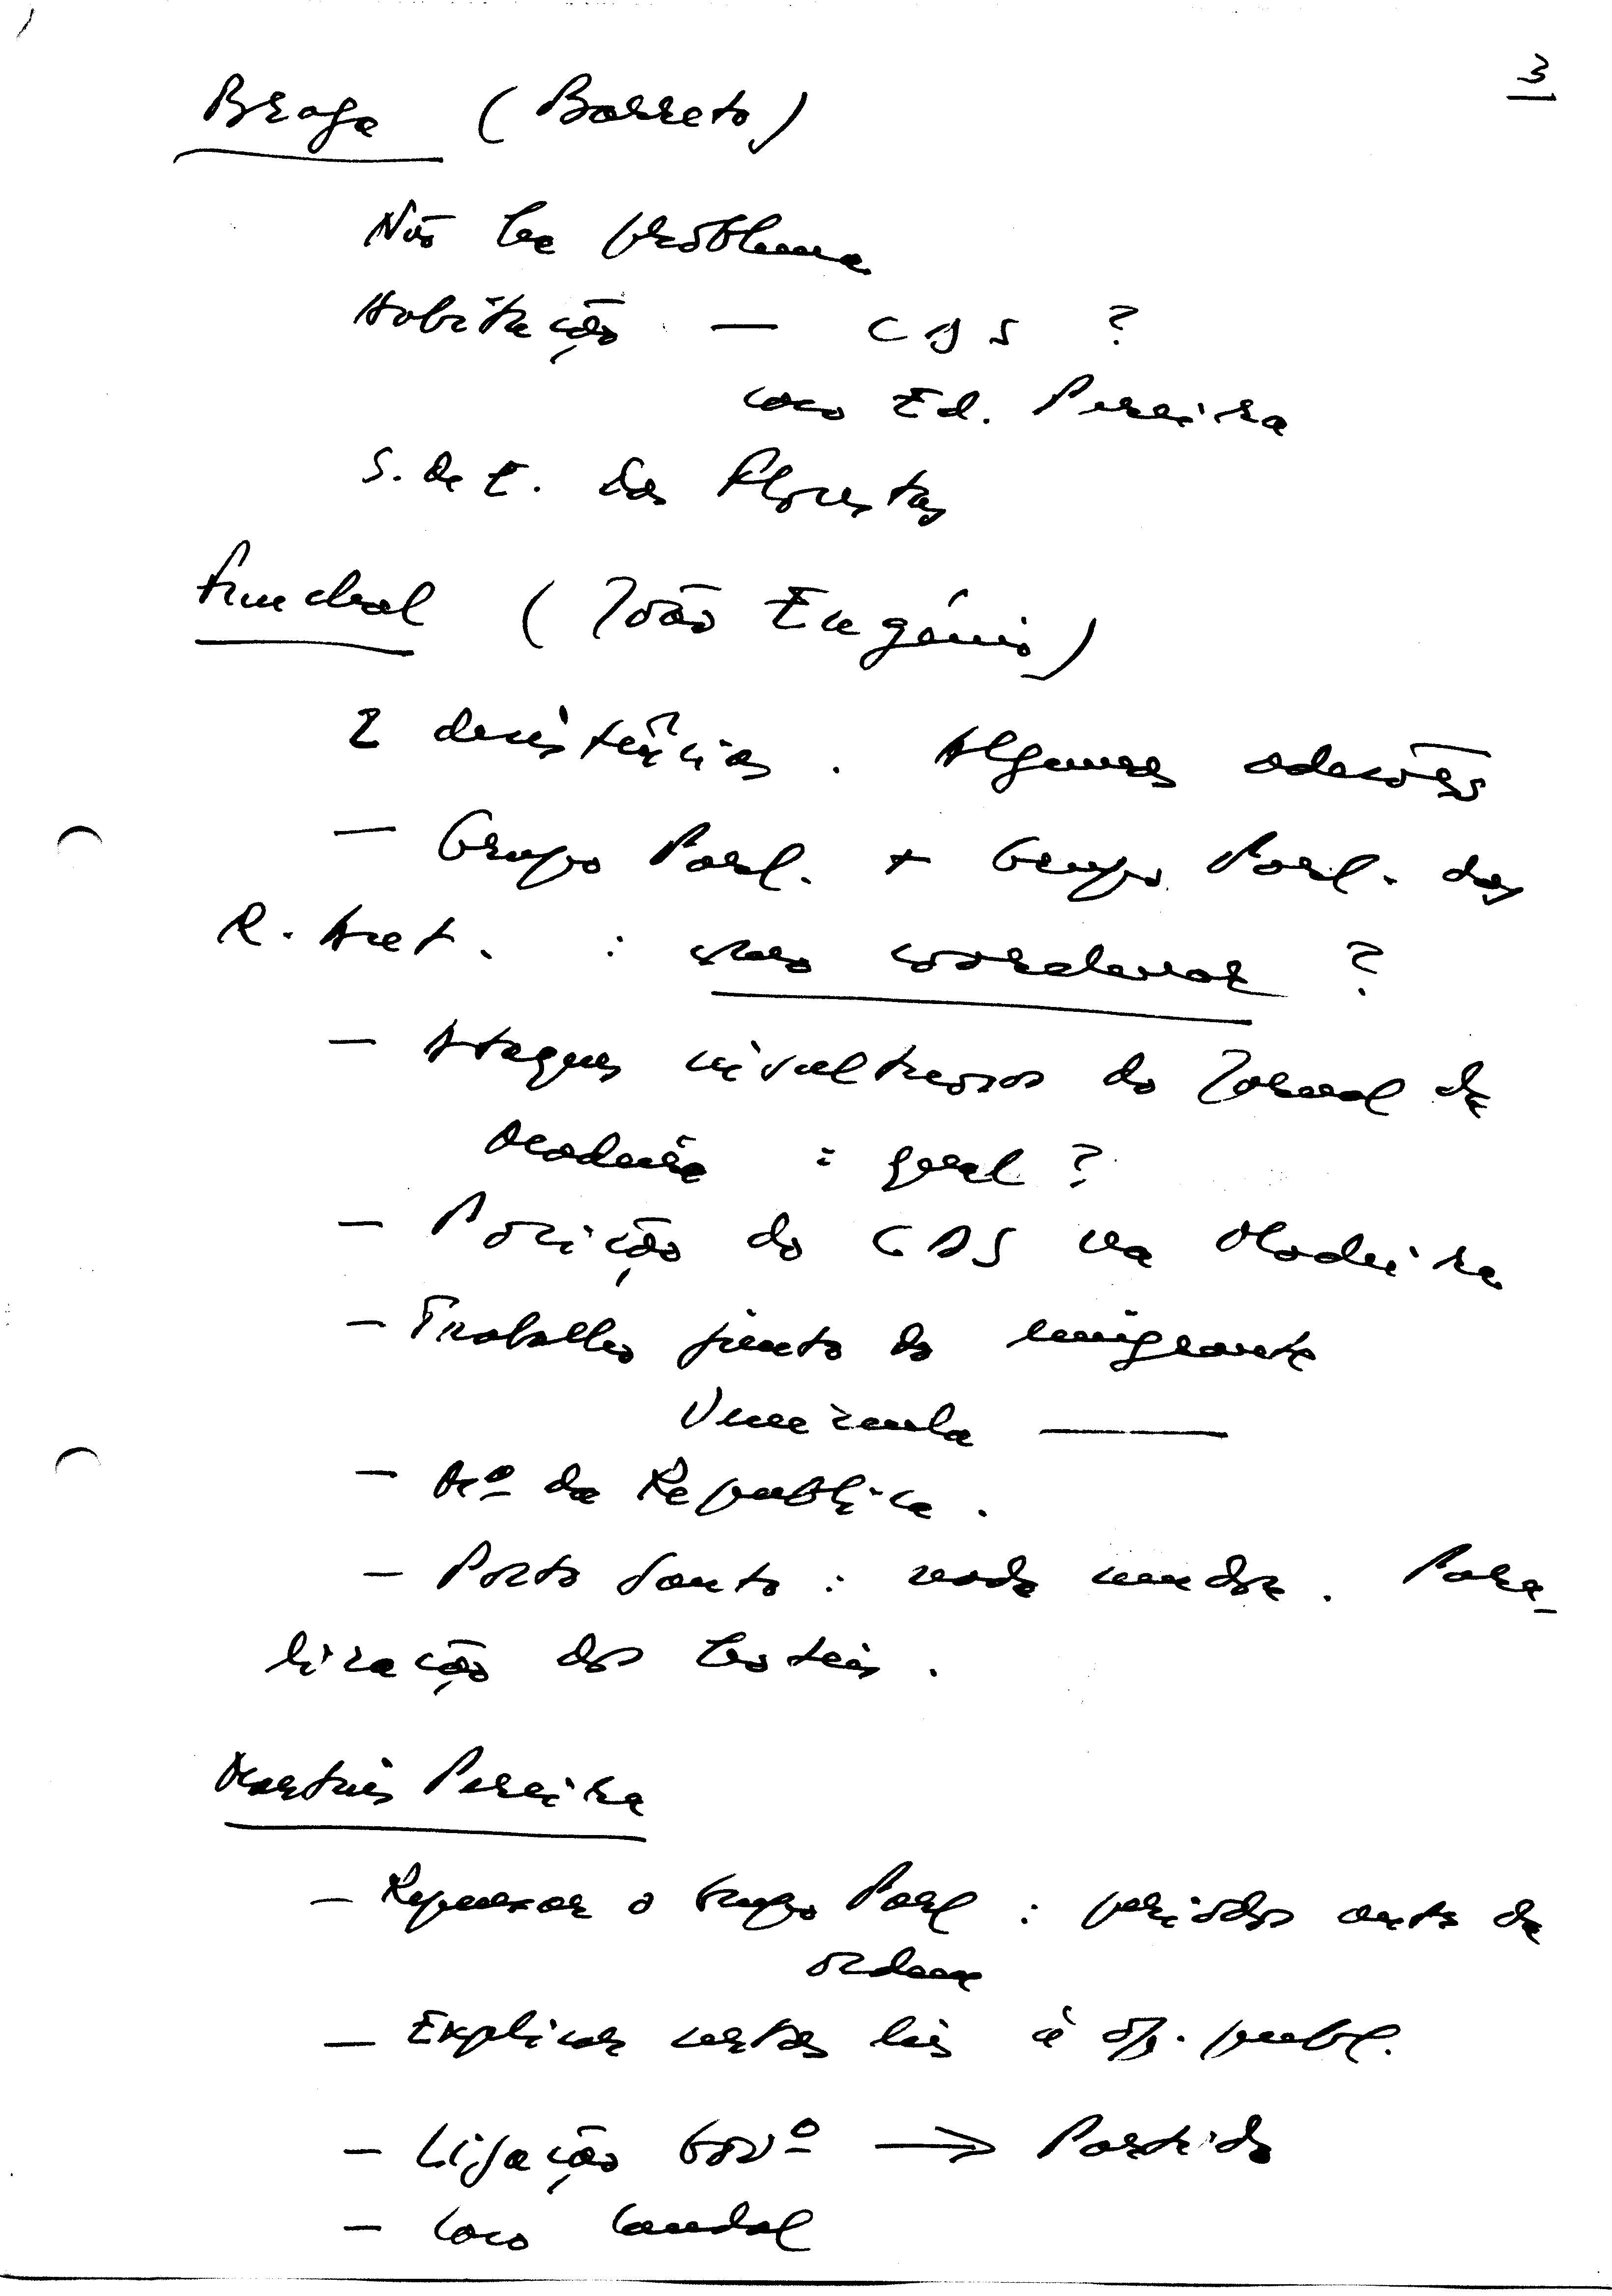 3
Braga (Barreto)
Não há problema
Habitação — CDS ?
caso Ed. Pereira
S. de E. das Florestas
Funchal (João Eugénio)
2 desistências. Algumas adesões
— Grupo Parl. + Grupo Parl. das
R. Aut. : como coordenar ?
— Ataques insultuosos do Jornal da
Madeira : geral ?
— Posição do CDS na Madeira
— Trabalho junto do emigrante
Venezuela —
— Mº da República.
— Porto Santo : nada mudou. Para-
lização dos hotéis.
Martins Pereira
— Repensar o Grupo Parl : período antes da
ordem
— Explicar certas leis à op. publ.
— Ligação Govº → Partido
— Caso